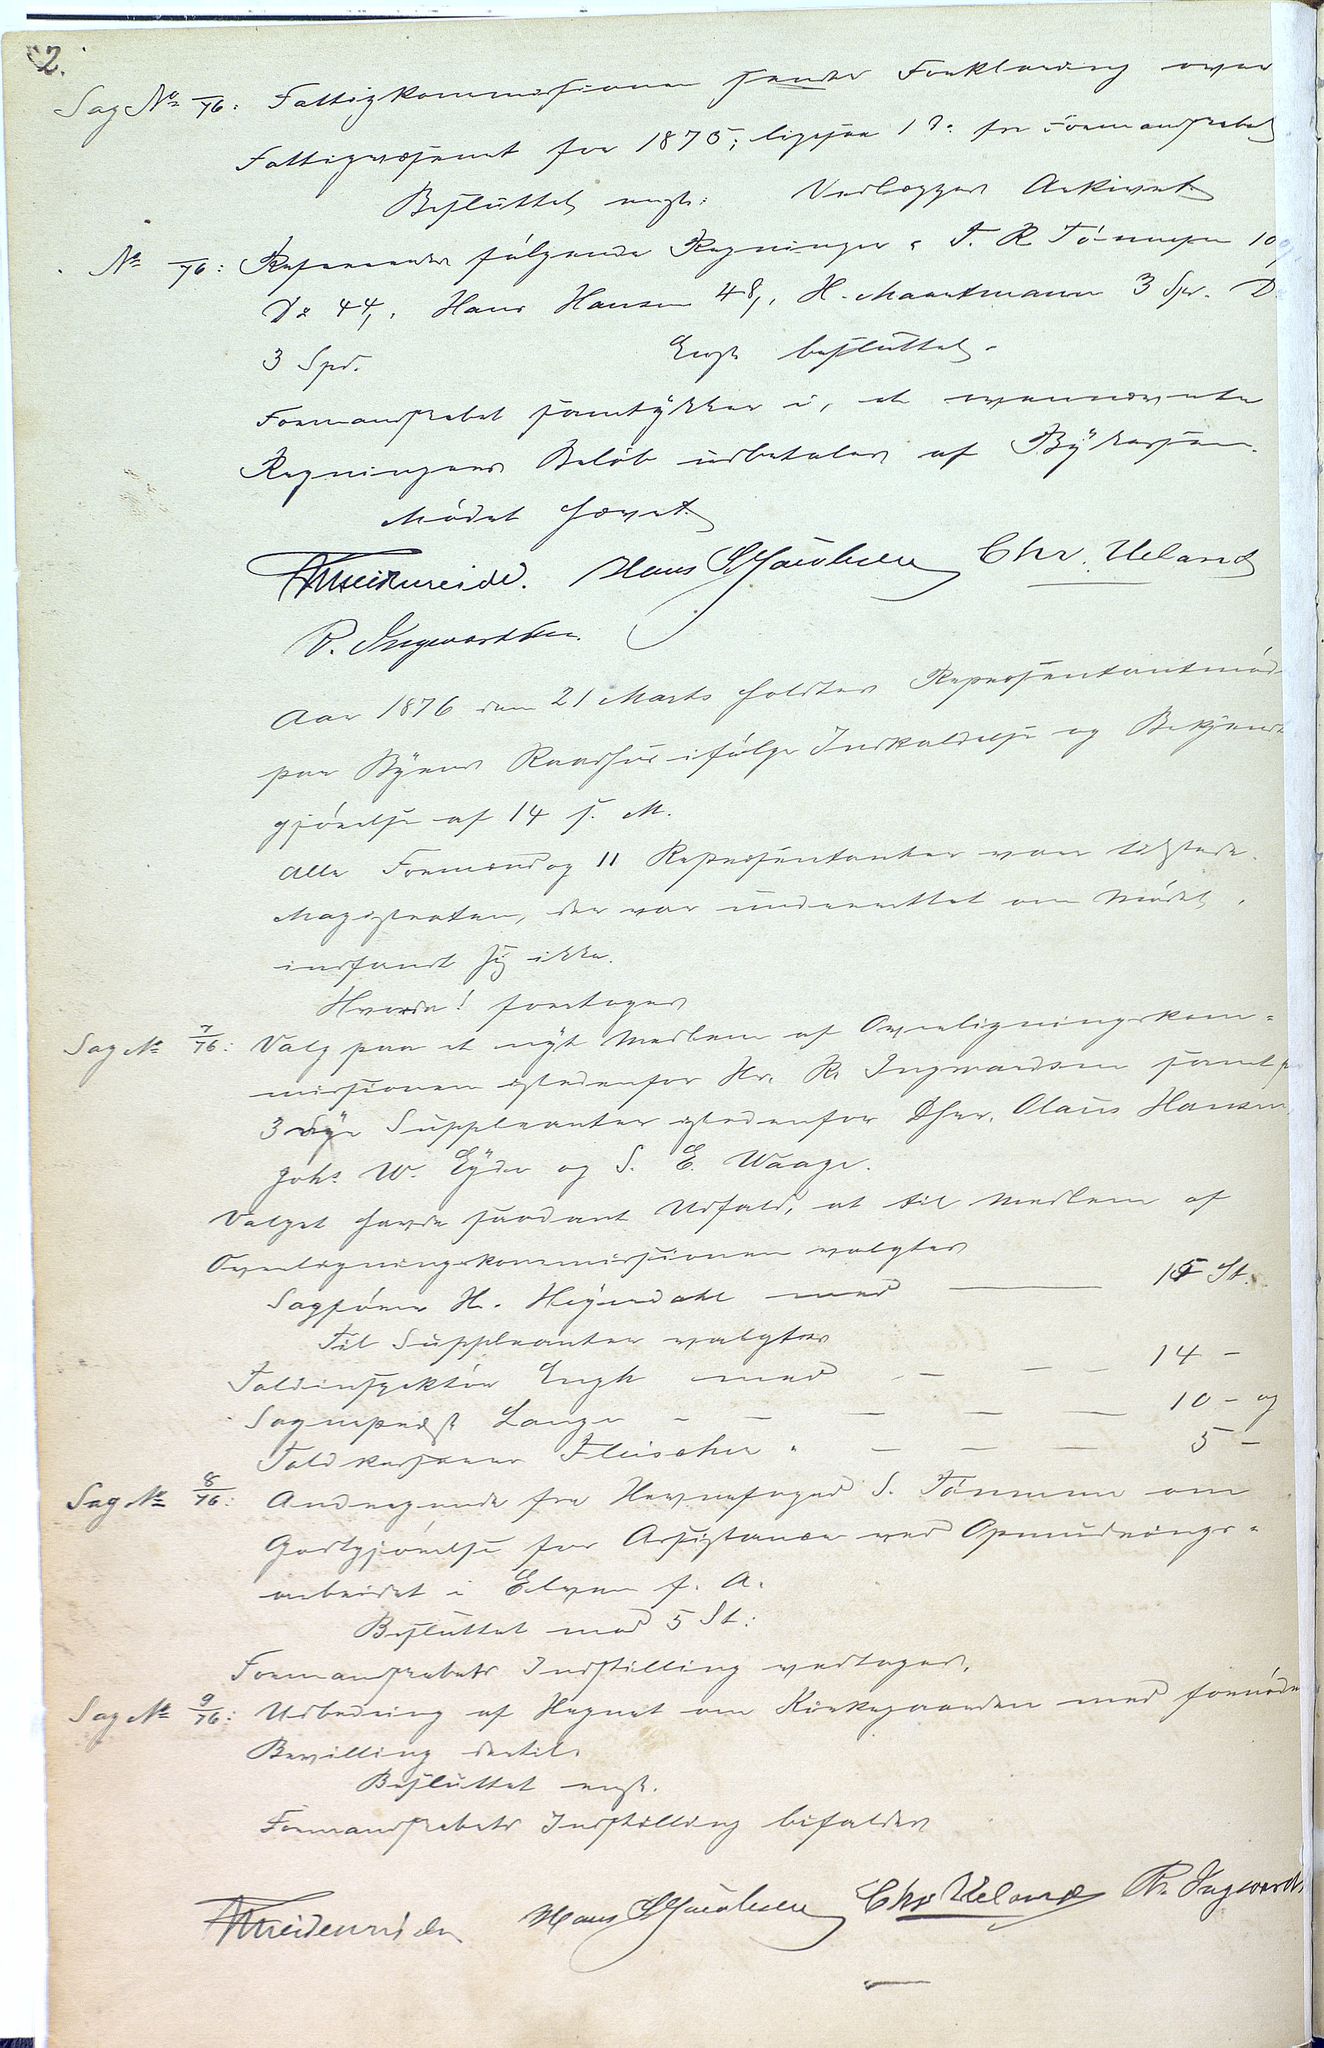 2.
Sag No /76: Fattigkommissionen sender Forklaring over
Fattigvæsenet for 1875; ligesaa 1 Do for Formandskabet
Besluttet enst: Vedlægges Arkivet
No /76: Refereredes følgende Regninger: T. R. Tönnesen 10
Do 44, Hans Hansen 48, H. Maartmann 3 Spd. D
3 Spd. Enst. besluttet.
Formandskabet samtykker i, at ovennævnte
Regningers Beløb udbetales af Bykassen.
Mødet hævet
Hans S Jacobsen Chr. Ueland
R. Ingwardsen.
Aar 1876 den 21 Marts holdtes Repræsentantmöde
paa Byens Raadhus ifølge Indkaldelse og Bekjendt
gjørelse af 14 s. M.
Alle Formænd og 11 Repræsentanter vare tilstede.
Magistraten, der var underrettet om Mødet,
indfandt sig ikke.
Hvorda! foretoges
Sag No 7/76: Valg paa et nyt Medlem af Overligningskom=
missionen istedenfor Hr. R. Ingwardsen samt paa
3 nye Suppleanter istedenfor Dhrr. Olaus Hansen,
Johs W. Eyde og S. E. Waage.
Valget havde saadant Udfald, at til Medlem af
Overligningskommissionen valgtes
Sagförer H. Heyerdahl med — 15 St.
Til Suppleanter valgtes
Toldinspektör Engh med - — — 14 -
Sogneprest Lange - - — — — 10 - og
Toldkasserer Fleischer " — — — 5 -
Sag No 8/76: Andragende fra Havnefoged S. Tönnesen om
Godtgjørelse for Assistance ved Opmudrings=
arbeidet i Elven f. A.
Besluttet med 5 St:
Formandskabets Indstilling vedtoges.
Sag No 9/76: Udbedring af Hegnet om Kirkegaarden med fornöden
Bevilling dertil.
Besluttet enst.
Formandskabets Indstilling bifaldes
Hans S Jacobsen Chr Ueland R. Ingwards